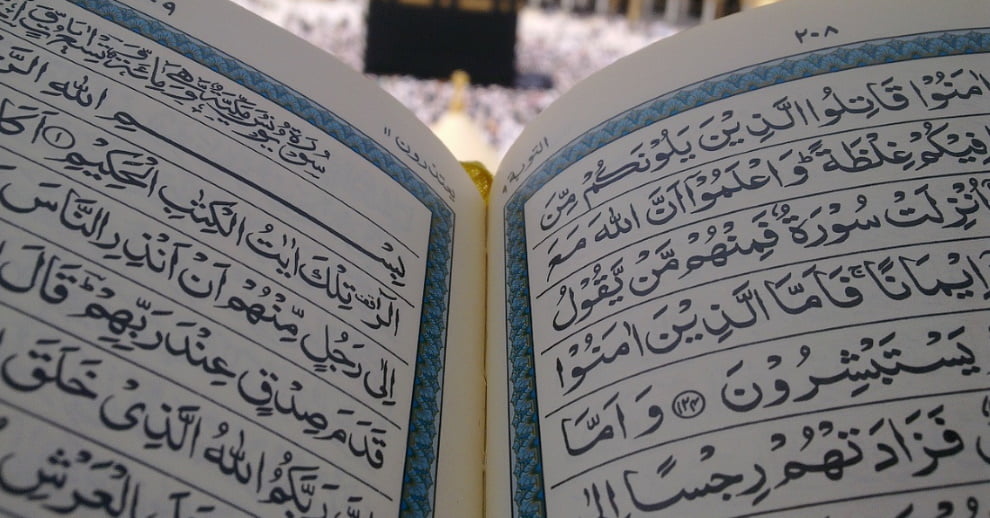 ٢٠٨
التوبة ٩
اٰمَنُوْا قَاتِلُوا الَّذِيْنَ يَلُوْنَكُمْ مِّنَ
فِيْكُمْ غِلْظَةً ؕ وَاعْلَمُوْۤا اَنَّ اللّٰهَ مَعَ
اُنْزِلَتْ سُوْرَةٌ فَمِنْهُمْ مَّنْ يَّقُوْلُ
اِيْمَانًا ۚ فَاَمَّا الَّذِيْنَ اٰمَنُوْا
يَسْتَبْشِرُوْنَ ﴿١٢٤﴾ وَاَمَّا
فَزَادَتْهُمْ رِجْسًا اِلٰى
٩
يعتذرون ١١
سُوْرَةُ يُوْنُسَ مَكِّيَّةٌ وَّهِيَ مِائَةٌ وَّتِسْعُ
بِسْمِ اللّٰهِ
الٓرٰ تِلْكَ اٰيٰتُ الْكِتٰبِ الْحَكِيْمِ ﴿١﴾
اِلٰى رَجُلٍ مِّنْهُمْ اَنْ اَنْذِرِ النَّاسَ
قَدَمَ صِدْقٍ عِنْدَ رَبِّهِمْ ؕ قَالَ
رَبَّكُمُ اللّٰهُ الَّذِيْ خَلَقَ
الْعَرْشِ